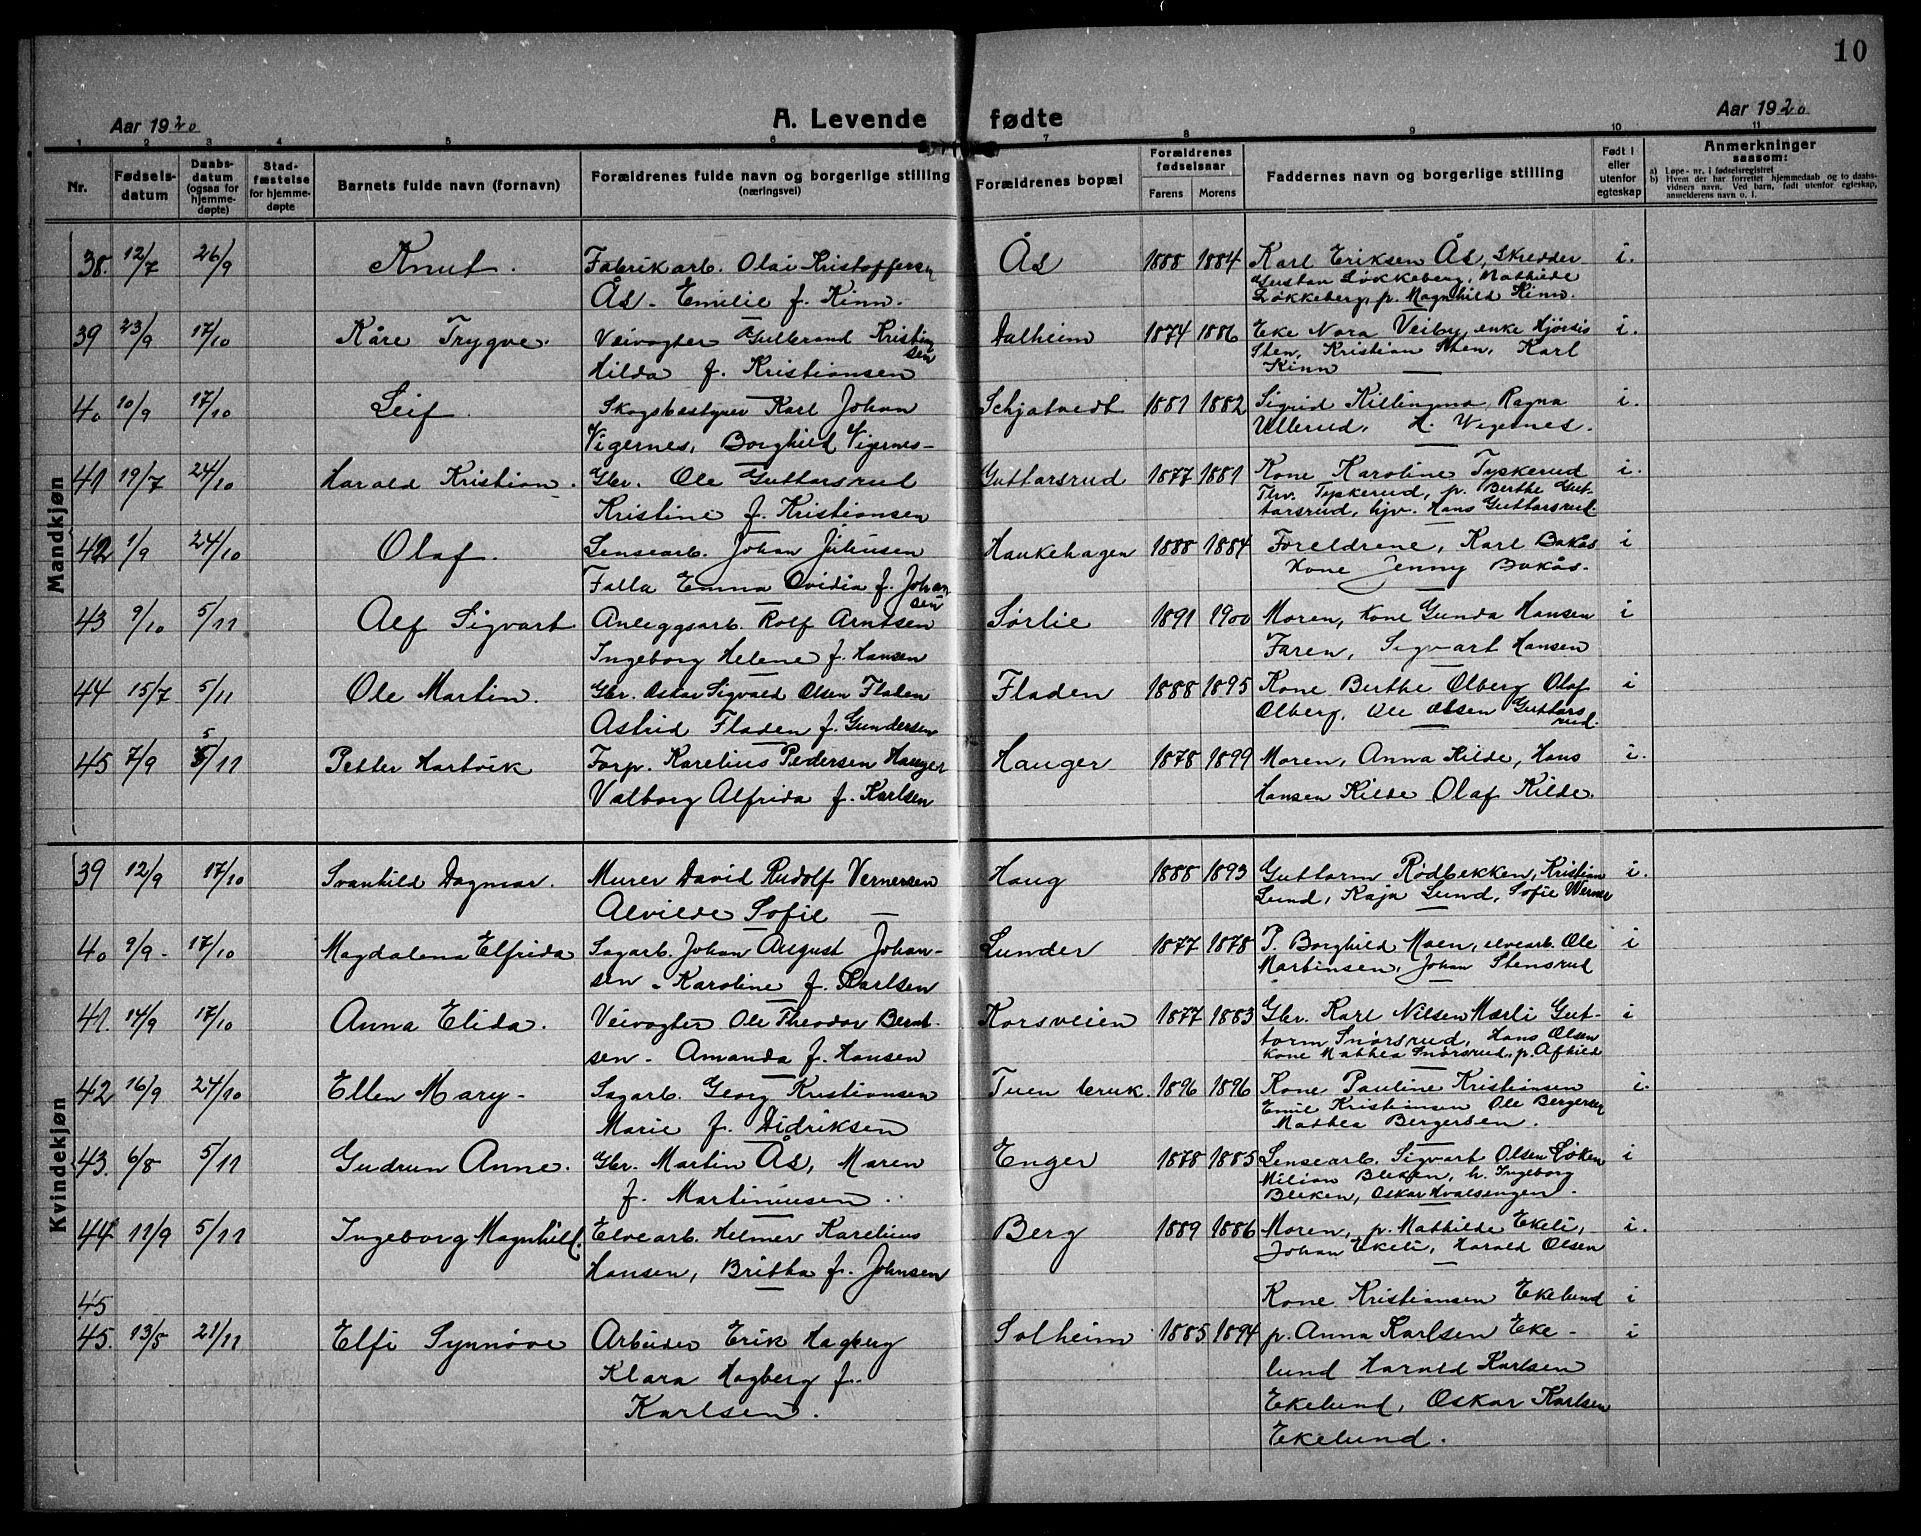 10
A. Levende fødte
Aar 1920
Aar 1920
1 2 3 4 5 6 7 8 9 10 11
Nr.
Fødselsdatum
Daabsdatum (ogsaa for hjemmedøpte)
Stadfæstelse for hjemmedøpte
Barnets fulde navn (fornavn)
Forældrenes fulde navn og borgerlige stilling (næringsvei)
Forældrenes bopæl
Forældrenes fødselsaar
Farens Morens
Faddernes navn og borgerlige stilling
Født i eller utenfor egteskap
Anmerkninger
saasom:
a) Løpe-nr. i fødselsregistret
b) Hvem der har forrettet hjemmedaab og to daabsvidners navn. Ved barn, født utenfor egteskap, anmelderens navn o. l.
Mandkjøn
38. 12/7 26/9 Knut. Fabrikarb. Olai Kristoffersen Ås 1888 1884 Karl Eriksen Ås, Skredder i.
Ås - Emilie f. Kinn. Løkkeberg, Mathilde
Løkkeberg, p. Magnhild Kinn.
39 23/9 17/10 Kåre Trygve. Veivogter Gulbrand Kristian Dalheim 1874 1886 Eke Nora Veiby, enke Hjørdis i.
sen Sten, Kristian Sten, Karl
Hilda f. Kristiansen Kinn
40 10/9 17/10 Leif. Skogsbestyrer Karl Johan Schjatvedt 1881 1882 Sigrid Killingmo, Ragna i.
Vigernes, Borghild Vigernes- Ullerud, H. Wigernes.
41 19/7 24/10 Harald Kristian. Gbr. Ole Guttorsrud Guttorsrud 1877 1881 Kone Karoline Tyskerud i.
Thv. Tyskerud, p. Berthe Gut-
Kristine f. Kristiansen torsrud, hjv. Hans Guttorsrud.
42 1/9 24/10 Olaf. Lensearb. Johan Juliusen Haukehagen 1888 1884 Foreldrene, Karl Bakås i
Falla Emma Ovidia f. Johan Kone Jenny Bakås.
sen
43 9/10 5/11 Alf Sigvart Anleggsarb. Rolf Arntsen Sørlie 1891 1900 Moren, Kone Gunda Hansen i
Ingeborg Helene f. Hansen Faren, Sigvart Hansen
44 15/7 5/11 Ole Martin. Gbr. Oskar Sigvald Olsen Fladen Fladen 1888 1895 Kone Berthe Olberg Olaf i
Astrid Fladen f. Gundersen Olberg, Ole Olsen Guttors
rud.
45 7/9 5/11 Petter Hartvik Forp. Karelius Pedersen Hauger Hauger 1878 1899 Moren, Anna Kilde, Hans i.
Valborg Alfrida f. Karlsen Hansen Kilde Olaf Kilde.
Kvindekjøn
39 12/9 17/10 Svanhild Dagmar. Murer David Rudolf Vernersen Haug 1888 1893 Guttorm Rødbekken, Kristian i.
Alvilde Sofie — Lund, Kaja Lund, Sofie Werner
40 9/9- 17/10 Magdalena Elfrida Sagarb. Johan August Johan- Lunder 1877 1878 P. Borghild Moen, elvearb. Ole i
sen - Karoline f. Karlsen Martinsen, Johan Stensrud
41. 14/9 17/10 Anna Elida. Veivogter Ole Theodor Bernt- Korsveien 1877 1883 Gbr. Karl Nilsen Mærli Gut- i
sen - Amanda f. Hansen torm Snørsrud, Hans Olsen
Kone Mathea Snørsrud, p. Afhild
42 16/9 24/10 Ellen Mary- Sagarb. Georg Kristiansen Tuen bruk. 1896 1896 Kone Pauline Kristiansen i.
Marie f. Didriksen Emil Kristiansen Ole Bergersen
Mathea Bergersen.
43. 6/8 5/11 Gudrun Anne. Gbr. Martin Ås, Maren Enger 1878 1885 Lensearb. Sigvart Olsen Løken i
f. Martiniusen. Milian Bleken, h. Ingeborg
Bleken, Oskar Hvalsengen.
44 11/9 5/11 Ingeborg Magnhild. Elvearb. Helmer Karelius Berg 1889 1886 Moren, p. Mathilde Ekeli, i.
Hansen, Britha f. Johnsen Johan Ekeli, Harald Olsen
45 Kone Kristiansen Ekelund i
45. 13/5 21/11 Elfi Synnøve Arbeider Erik Hagberg Solheim 1885 1894 p. Anna Karlsen Eke- i
Klara Hagberg f. lund Harald Karlsen
Karlsen. Ekelund, Oskar Karlsen
Ekelund.